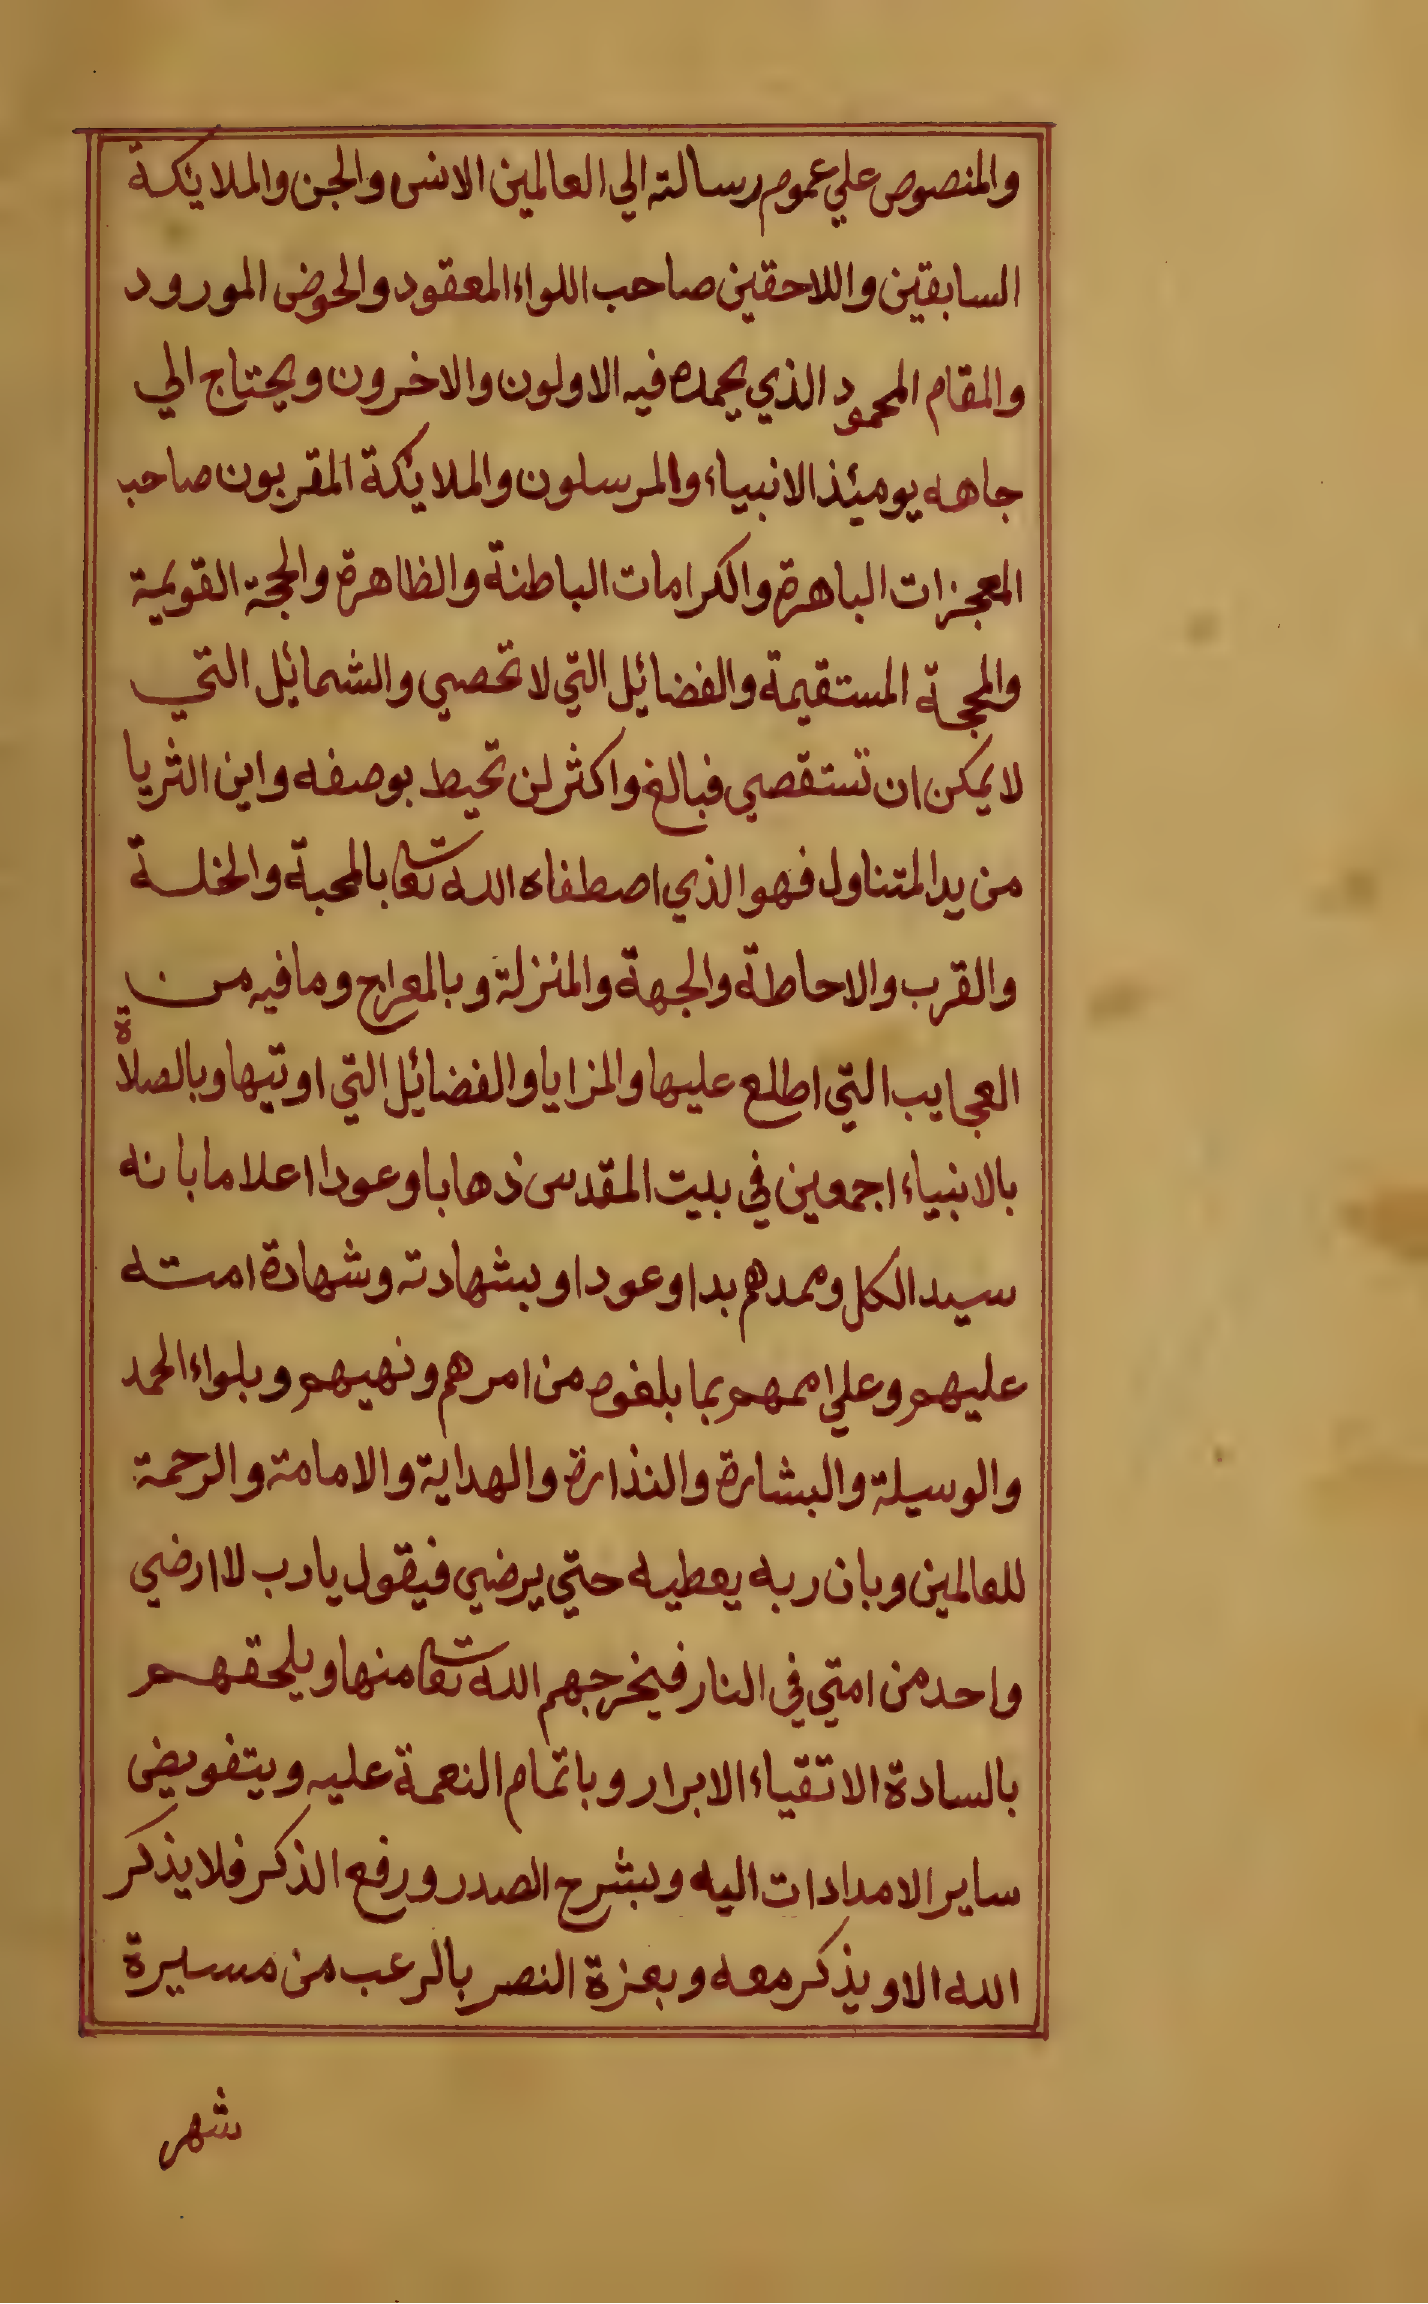 والمنصوص علي عموم رسالته الي العالمين الانس والجن والملايكة
السابقين واللاحقين صاحب اللواء المعقود والحوض المورود
والمقام المحمود الذي يحمده فيه الاولون والاخرون ويحتاج الي
جاهه يومئذ الانبياء والمرسلون والملايكة المقربون صاحب
المعجزات الباهرة والكرامات الباطنة والظاهرة والحجة القويمة
والمحجة المستقيمة والفضائل التي لا تحصي والشمائل التي
لا يمكن ان تستقصي فبالغ واكثر لن تحيط بوصفه واين الثريا
من يد المتناول فهو الذي اصطفاه الله تعا بالمحبة والخلة
والقرب والاحاطة والجهة والمنزلة وبالمعراج وما فيه من
العجايب التي اطلع عليها والمزايا والفضائل التي اوتيها وبالصلاة
بالانبياء اجمعين في بيت المقدس ذهابا وعودا اعلاما بانه
سيد الكل وممدهم بدا وعودا وبشهادته وشهادة امته
عليهم وعلي اممهم بما بلغوه من امرهم ونهيهم وبلواء الحمد
والوسيلة والبشارة والنذارة والهداية والامامة والرحمة
للعالمين وبان ربه يعطيه حتي يرضي فيقول يارب لا ارضي
واحد من امتي في النار فيخرجهم الله تعا منها ويلحقهم
بالسادة الاتقياء الابرار وباتمام النعمة عليه وبتفويض
ساير الامدادات اليه وبشرح الصدر ورفع الذكر فلا يذكر
الله الا ويذكر معه وبعزة النصر بالرعب من مسيرة
شهر